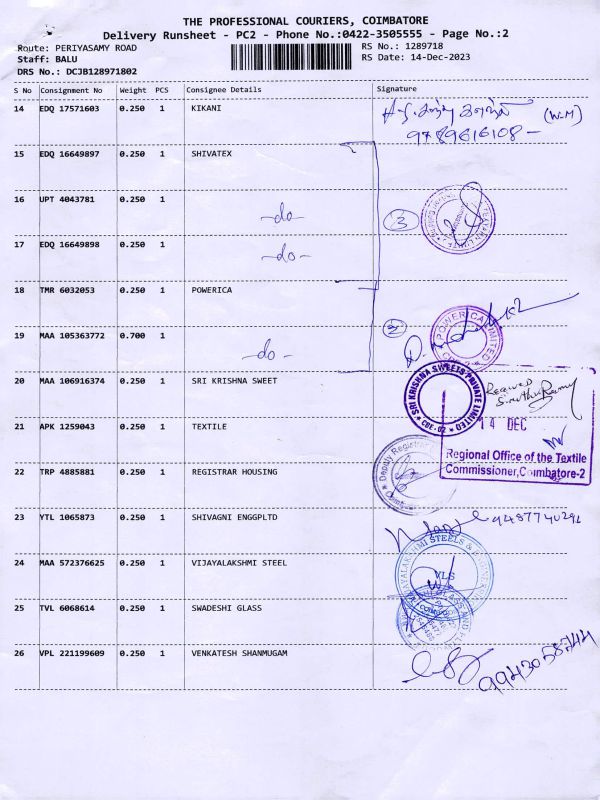 THE PROFESSIONAL COURIERS, COIMBATORE
Delivery Runsheet - PC2 - Phone No.:0422-3505555 - Page No.:2
Route: PERIYASAMY ROAD
RS No.: 1289718
Staff: BALU
RS Date: 14-Dec-2023
DRS No.: DCJB128971802
S No Consignment No Weight PCS Consignee Details Signature
14 EDQ 17571603 0.250 1 KIKANI
(W-M)
9789616108-
15 EDQ 16649897 0.250 1 SHIVATEX
16 UPT 4043781 0.250 1
-do-
3
17 EDQ 16649898 0.250 1
-do-
18 TMR 6032053 0.250 1 POWERICA
19 MAA 105363772 0.700 1
-do-
POWERICA LIMITED
20 MAA 106916374 0.250 1 SRI KRISHNA SWEET
SRI KRISHNA SWEETS PRIVATE LIMITED
CBE-02
Received
14 DEC
21 APK 1259043 0.250 1 TEXTILE
Regional Office of the Textile
Commissioner,Coimbatore-2
22 TRP 4885881 0.250 1 REGISTRAR HOUSING
Deputy Registrar
23 YTL 1065873 0.250 1 SHIVAGNI ENGGPLTD
9487740294
24 MAA 572376625 0.250 1 VIJAYALAKSHMI STEEL
VIJAYALAKSHMI STEELS &
VLS
25 TVL 6068614 0.250 1 SWADESHI GLASS
26 VPL 221199609 0.250 1 VENKATESH SHANMUGAM
9943058744